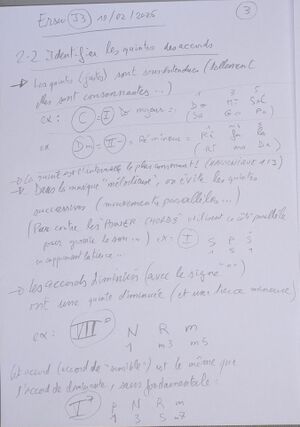 Ersu J3 10/02/2025 3
2-2 identifier les quintes des accords
→ Les quintes (justes) sont sousentendues (tellement
elles sont consonnantes...)
1 3 5
ex: C = I Do majeur = Do mi Sol
(
ex Dm = II- = Ré mineur = Ré fa
(
→ La quinte est l'intervalle le plus consonnant!
→ Dans la musique "mélodieuse", on évite les quintes
successives (mouvements parallèles...)
(Par contre les POWER CHORDS utilisent ce côté parallèle
pour grossir le son...) ex: I S P S
en supprimant la tierce 1 5 1
→ Les accords diminués (avec le signe "o")
ont une quinte diminuée (et une tierce mineure)
ex: VII° N R m
1 m3 m5
Cet accord (accord de "sensible") est le même que
l'accord de dominante, sans fondamentale:
P N R m
1 3 5 m7